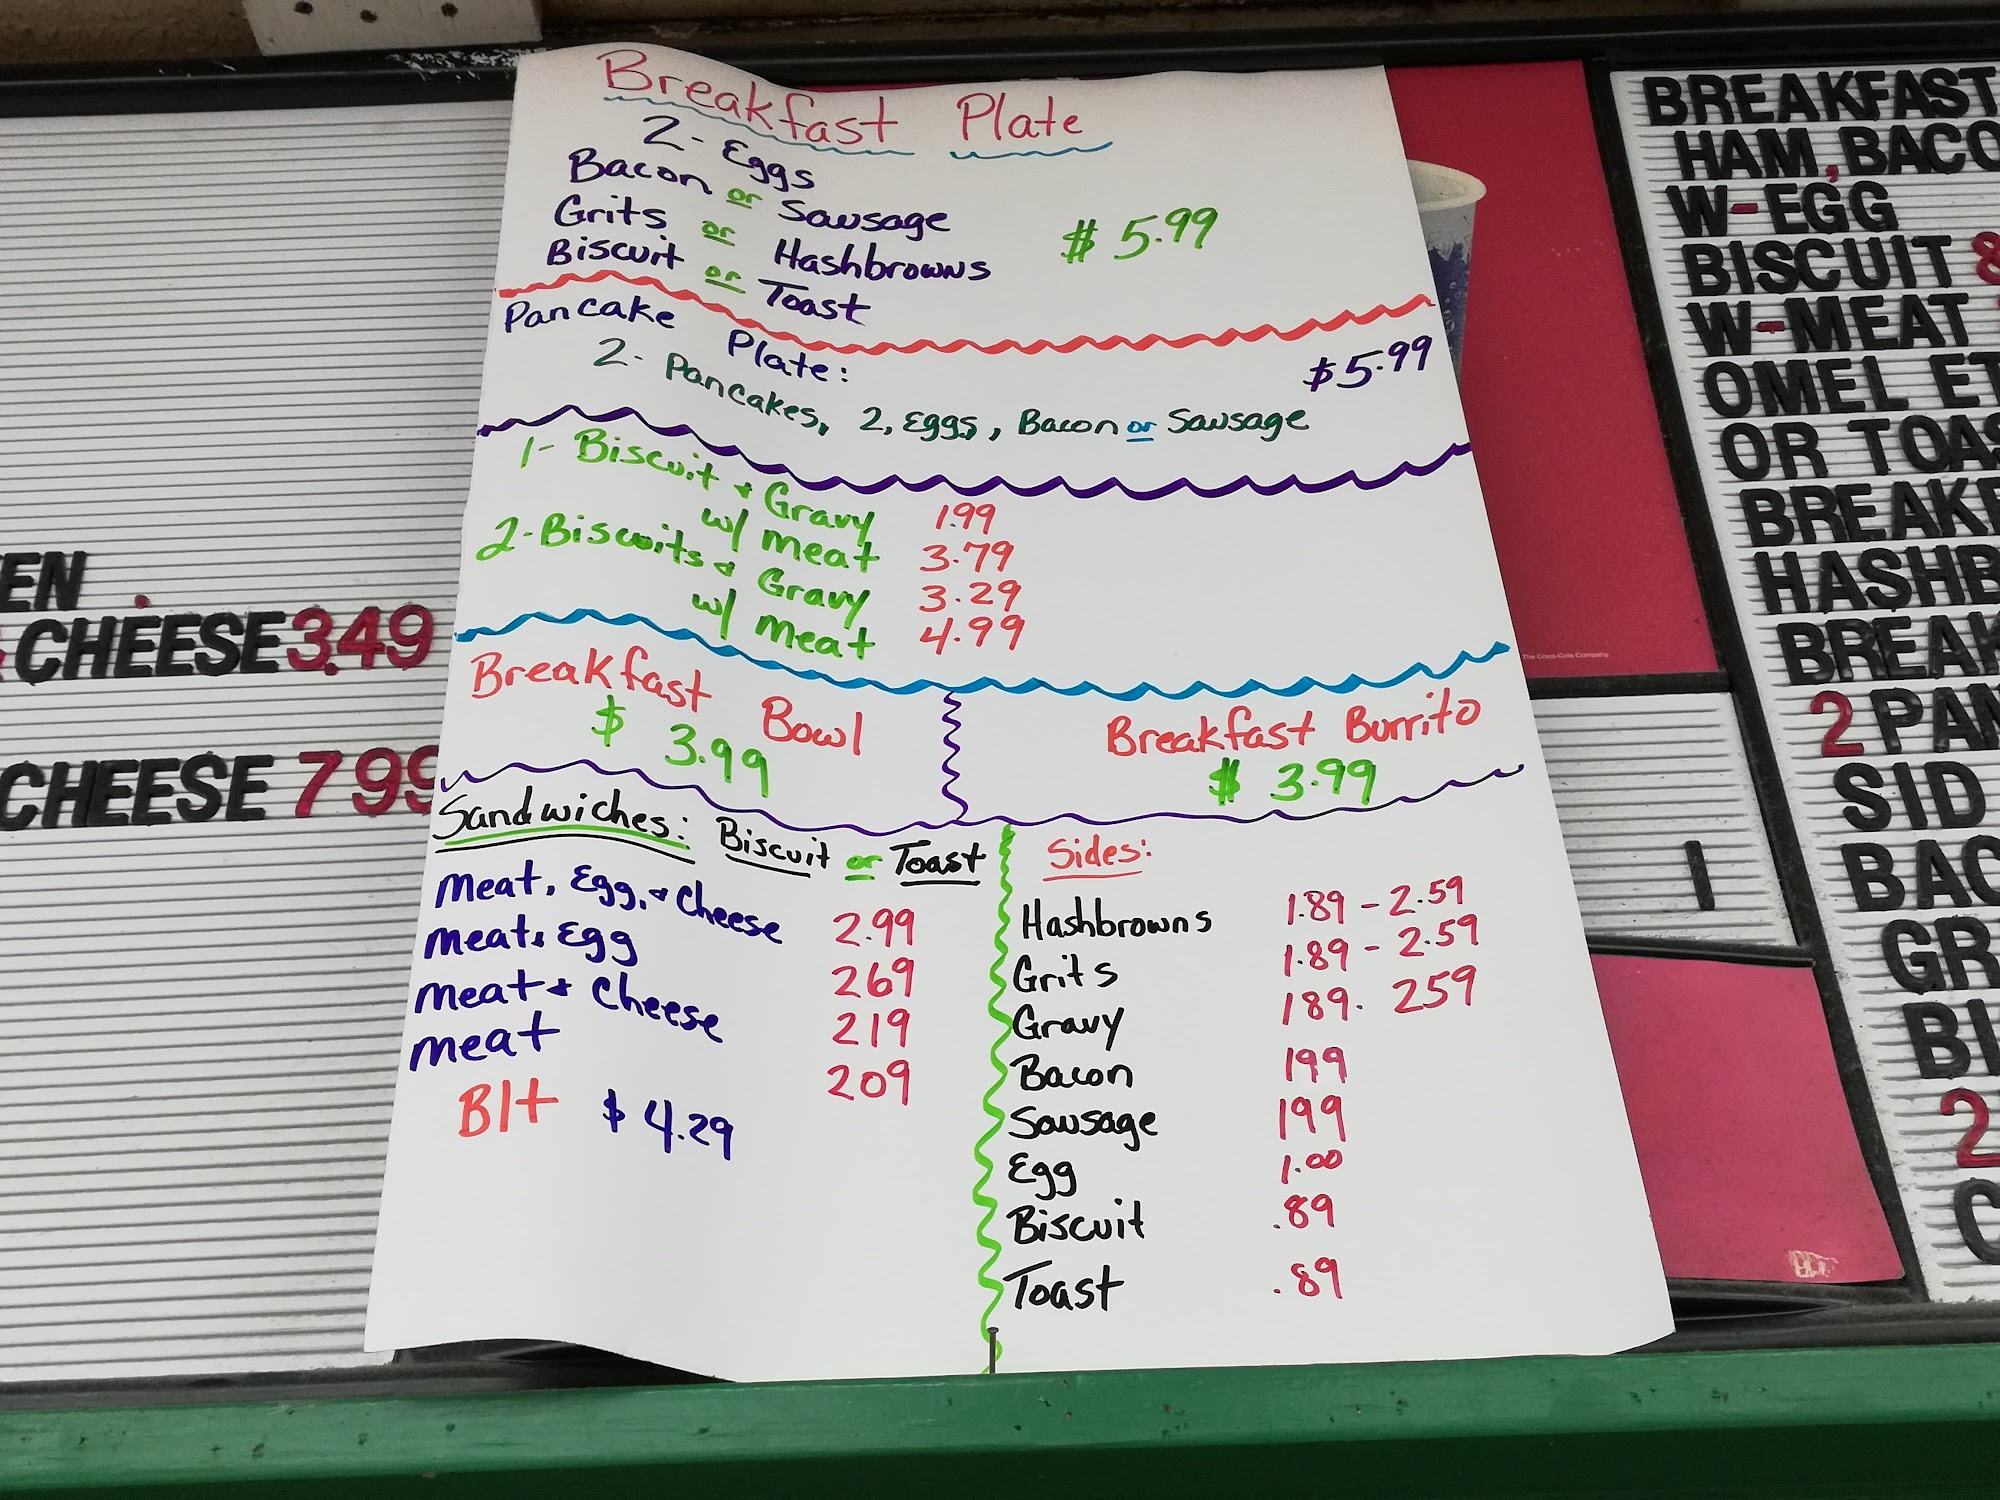 Breakfast Plate
2- Eggs
Bacon or Sausage
Grits or Hashbrowns $5.99
Biscuit or Toast
Pancake Plate: $5.99
2- Pancakes, 2, Eggs, Bacon or Sausage
1- Biscuit & Gravy 1.99
w/ meat 3.79
2-Biscuits & Gravy 3.29
w/ meat 4.99
Breakfast Bowl
$ 3.99
Breakfast Burrito
$ 3.99
Sandwiches: Biscuit or Toast
Meat, Egg, & Cheese 2.99
Meat & Egg 269
Meat & Cheese 219
Meat 209
Blt $ 4.29
Sides:
Hashbrowns 1.89 - 2.59
Grits 1.89 - 2.59
Gravy 189. 259
Bacon 199
Sausage 199
Egg 1.00
Biscuit .89
Toast .89
EN
CHEESE 3.49
CHEESE 799
The Coca-Cola Company.
1
BREAKFAST
HAM, BACO
W-EGG
BISCUIT
W-MEAT
OMELET
OR TOAS
BREAKF
HASHB
BREAK
2 PAN
SID
BAC
GR
BI
2
C